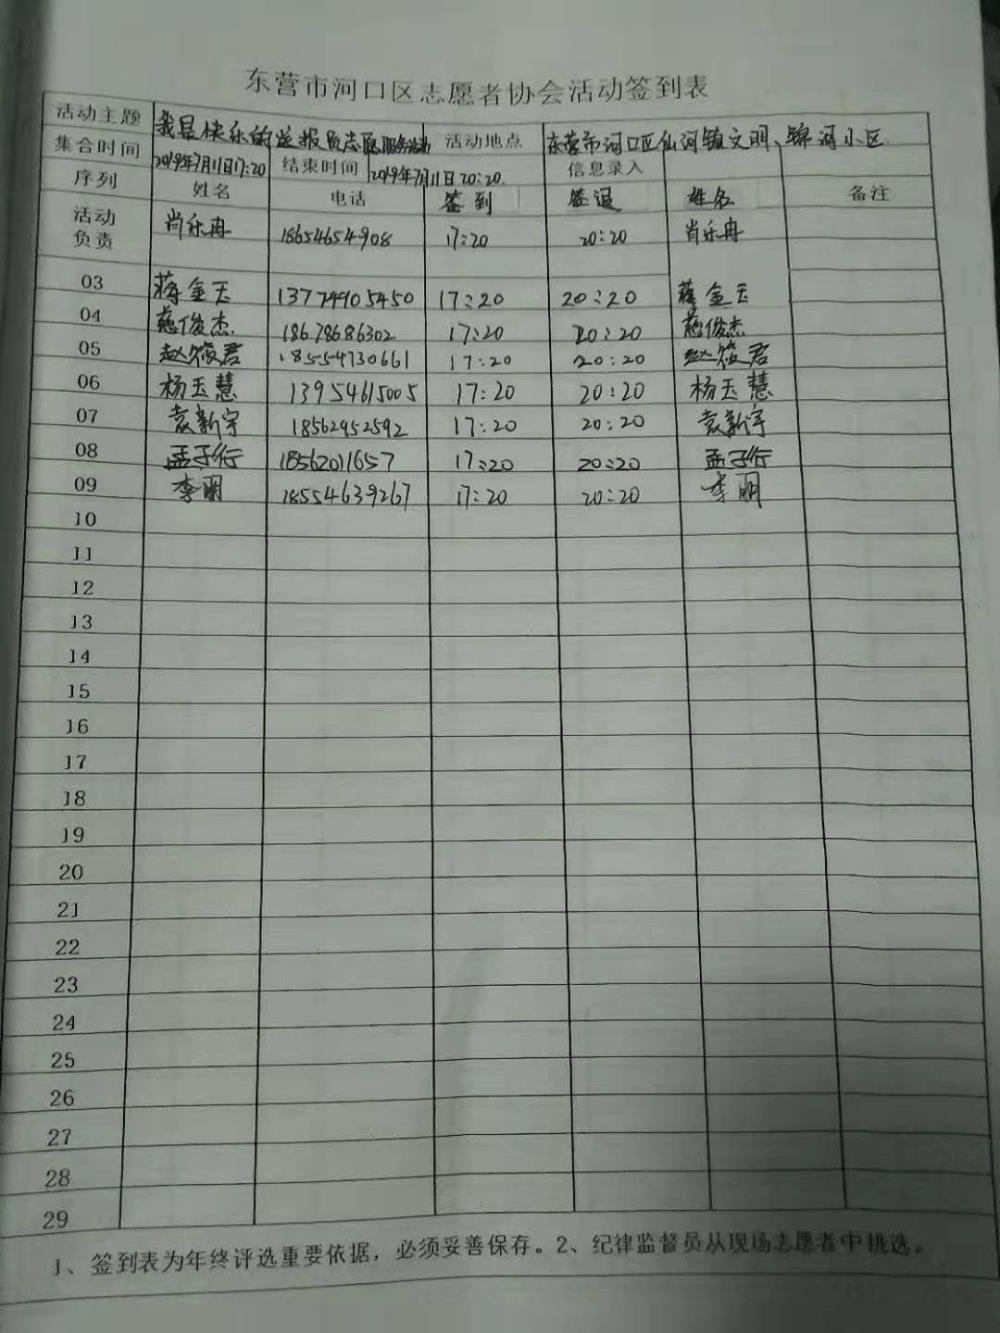 东营市河口区志愿者协会活动签到表
活动主题 我是快乐的送报员志愿服务活动 活动地点 东营市河口区仙河镇文明、锦河小区
集合时间 2019年7月11日17:20 结束时间 2019年7月11日20:20 信息录入
序列 姓名 电话 签到 签退 姓名 备注
活动负责 肖乐冉 18654654908 17:20 20:20 肖乐冉
03 蒋金玉 137749905450 17:20 20:20 蒋金玉
04 俊杰 18678686302 17:20 20:20 俊杰
05 赵筱君 18554730661 17:20 20:20 赵筱君
06 杨玉慧 13954615005 17:20 20:20 杨玉慧
07 袁新宇 18562952592 17:20 20:20 袁新宇
08 孟子行 18562011657 17:20 20:20 孟子行
09 李明 18554639267 17:20 20:20 李明
10
11
12
13
14
15
16
17
18
19
20
21
22
23
24
25
26
27
28
29
1、签到表为年终评选重要依据，必须妥善保存。2、纪律监督员从现场志愿者中挑选。